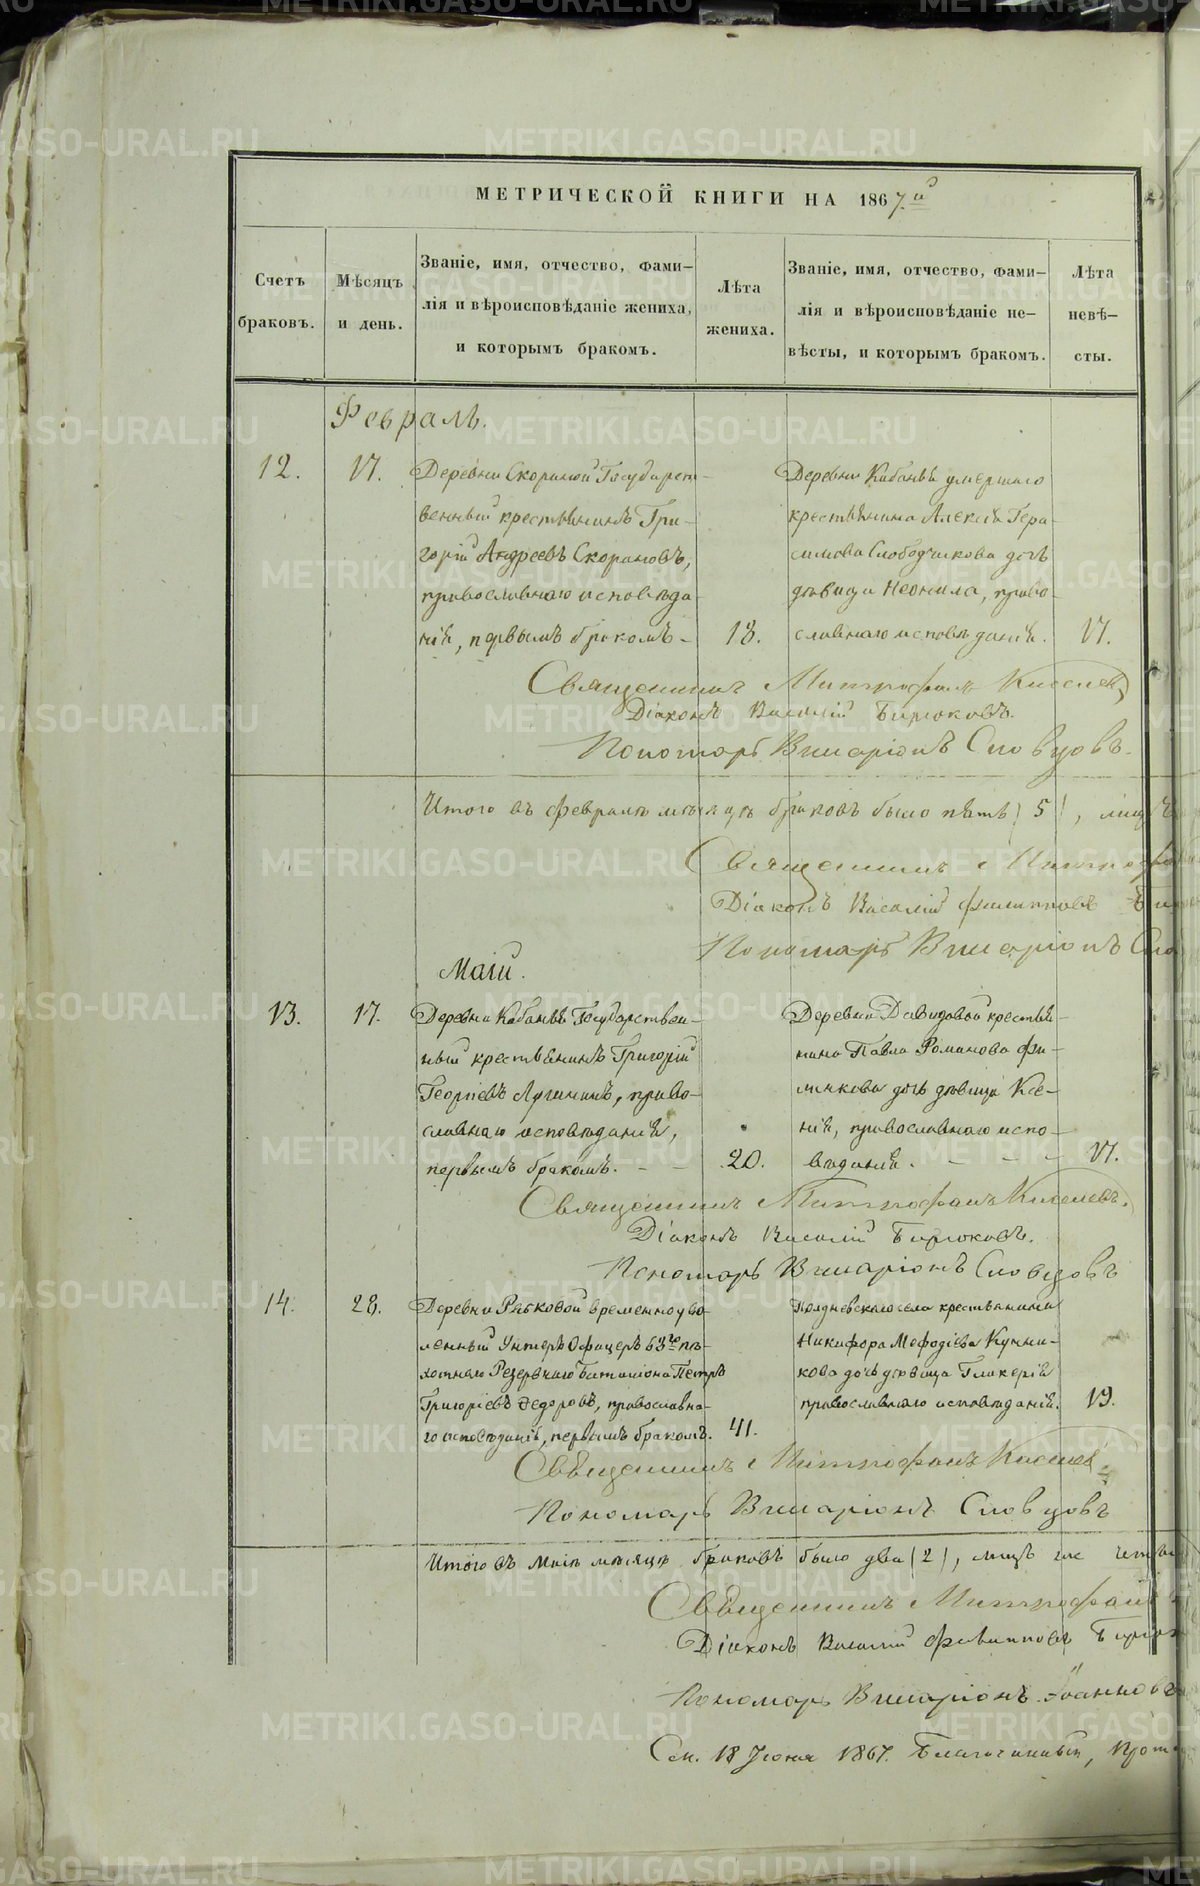 МЕТРИЧЕСКОЙ КНИГИ НА 1867.й
Счетъ браковъ.
Мѣсяцъ и день.
Званіе, имя, отчество, фами-
лія и вѣроисповѣданіе жениха,
и которымъ бракомъ.
Лѣта жениха.
Званіе, имя, отчество, фами-
лія и вѣроисповѣданіе не-
вѣсты, и которымъ бракомъ.
Лѣта невѣ-
сты.
Февраль.
12.
17.
Деревни Скориной Государст-
венный крестьянинъ Гри-
горій Андреевъ
православнаго исповѣда-
нія, первымъ бракомъ -
18.
Деревни Кабанья умершаго
крестьянина Алексія Гера-
симова Слободчикова дочь
дѣвица Неонила, право-
славнаго исповѣданія.
17.
Священникъ Митрофанъ Киселевъ
Діаконъ Василій Бирюковъ.
Пономарь Виссаріонъ Словцовъ.
Итого въ февралѣ мѣсяцѣ браковъ было пять (5), лицъ
Священникъ Митрофа
Діаконъ Василій Филипповъ Би
Пономарь Виссаріонъ Сло
Маій.
13.
17.
Деревни Кабанья Государствен-
ный крестьянинъ Григорій
Георгіевъ Лугининъ, право-
славнаго исповѣданія,
первымъ бракомъ. - -
20.
Деревни Давыдовой крестья-
нина Павла Романова Фи-
линкова дочь дѣвица Ксе-
нія, православнаго испо-
вѣданія. - - -
17.
Священникъ Митрофанъ Киселевъ.
Діаконъ Василій Бирюковъ.
Пономарь Виссаріонъ Словцовъ
14.
28.
Деревни Рябковой временноуво-
ленный Унтеръ Офицеръ 63го пѣ-
хотнаго Резервнаго Баталіона Петръ
Григоріевъ Федоровъ, православна-
го исповѣданія, первымъ бракомъ.
41.
села крестьянина
Никифора Мефодіева
кова дочь дѣвица Гликерія
православнаго исповѣданія.
19.
Священникъ Митрофанъ Киселев
Пономарь Виссаріонъ Словцовъ
Итого въ Маіѣ мѣсяцѣ браковъ было два (2), лицъ же четы
Священникъ Митрофанъ
Діаконъ Василій Филипповъ Бирюк
Пономарь Виссаріонъ Іоанновъ
18 Іюня 1867. Благочинный, Прот
METRIKI.GASO-URAL.RU